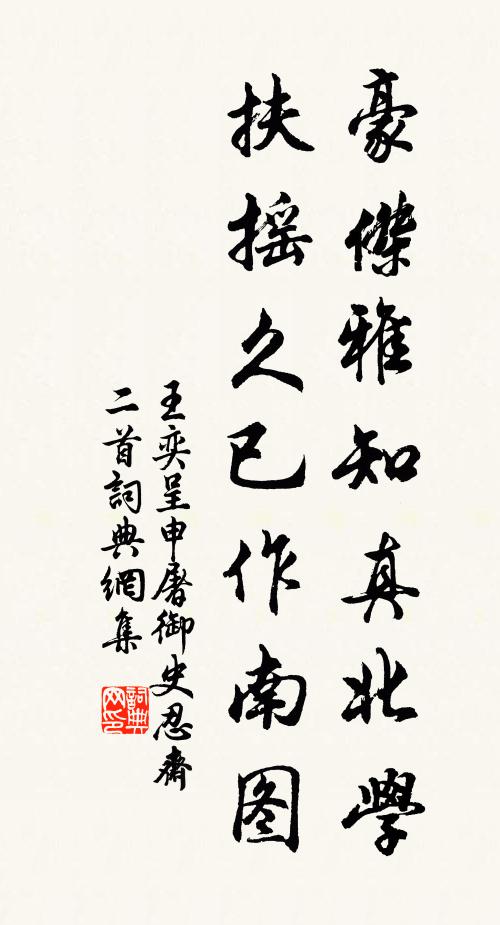 豪傑雅知真北學
扶摇久已作南图
王奕呈申屠御史忍齋
二首詞典網集
詞典网印